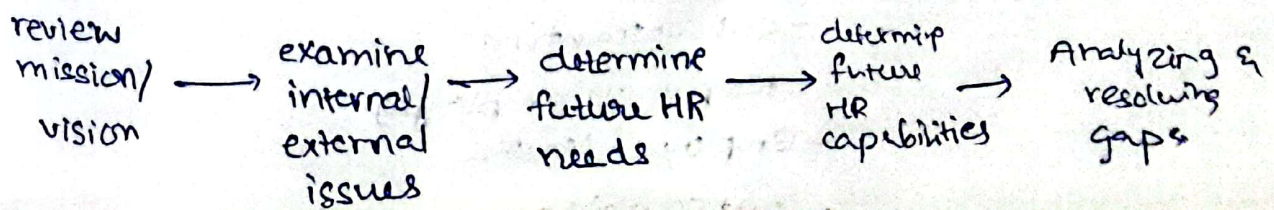 review
mission/
vision
examine
internal/
external
issues
determine
future HR
needs
determine
future
HR
capabilities
Analyzing &
resolving
gaps